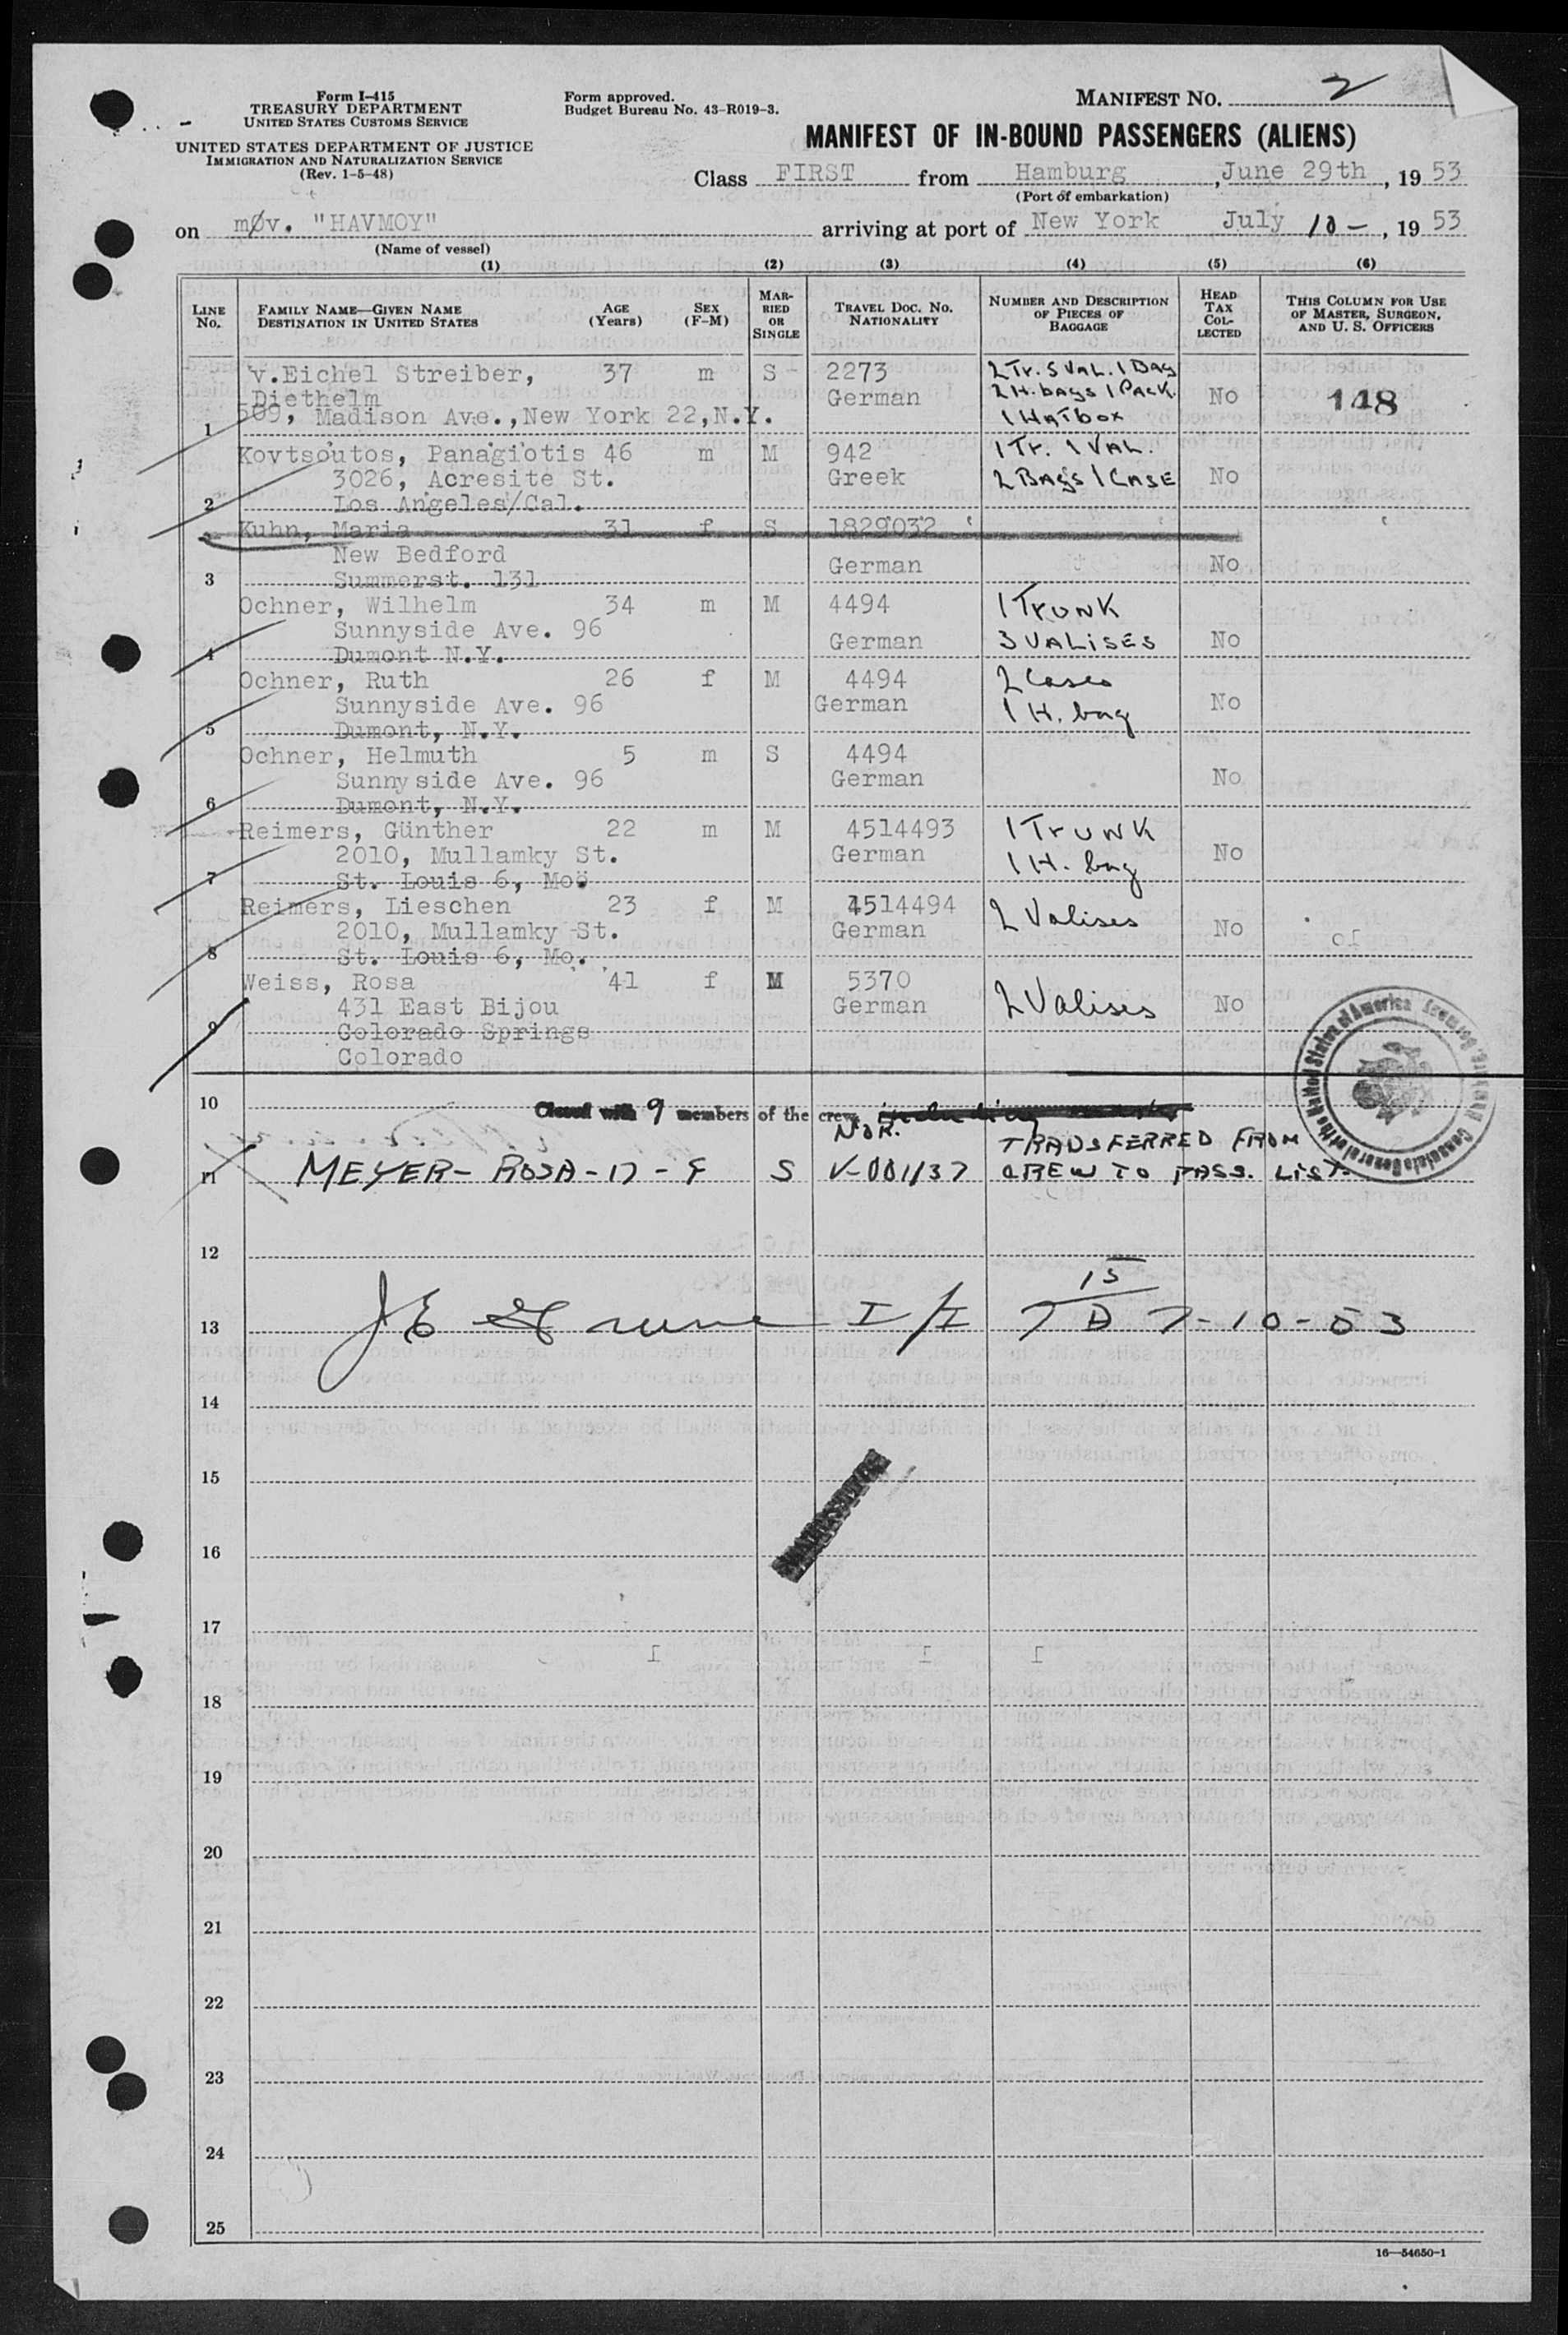 Form I-415
TREASURY DEPARTMENT
UNITED STATES CUSTOMS SERVICE
UNITED STATES DEPARTMENT OF JUSTICE
IMMIGRATION AND NATURALIZATION SERVICE
(Rev. 1-5-48)
Form approved.
Budget Bureau No. 43-R019-3.
MANIFEST NO. 2
MANIFEST OF IN-BOUND PASSENGERS (ALIENS)
Class FIRST from Hamburg, June 29th, 1953
(Port of embarkation)
on møv. "HAVMOY" arriving at port of New York July 10-, 1953
(Name of vessel)
(1) (2) (3) (4) (5) (6)
LINE No. FAMILY NAME—GIVEN NAME DESTINATION IN UNITED STATES AGE (Years) SEX (F-M) MARRIED OR SINGLE TRAVEL DOC. NO. NATIONALITY NUMBER AND DESCRIPTION OF PIECES OF BAGGAGE HEAD TAX COLLECTED THIS COLUMN FOR USE OF MASTER, SURGEON, AND U. S. OFFICERS
v.Eichel Streiber, 37 m S 2273 2 Tr. 5 VAL. 1 BAG
Diethelm German 2 H. bAgs 1 PACK. No 148
1 509, Madison Ave.,New York 22,N.Y. 1 HATbox
Kovtsoutos, Panagiotis 46 m M 942 1 Tr. 1 VAL.
3026, Acresite St. Greek 2 BAgs 1 CASE No
2 Los Angeles/Cal.
Kuhn, Maria 31 f S 1829032
New Bedford German No
3 Summerst. 131
Ochner, Wilhelm 34 m M 4494 1 TrUNK
Sunnyside Ave. 96 German 3 VALiSES No
4 Dumont N.Y.
Ochner, Ruth 26 f M 4494 2 Cases
Sunnyside Ave. 96 German 1 H. bag No
5 Dumont, N.Y.
Ochner, Helmuth 5 m S 4494
Sunnyside Ave. 96 German No
6 Dumont, N.Y.
Reimers, Günther 22 m M 4514493 1 TrUNK
2010, Mullamky St. German 1 H. bag No
7 St. Louis 6, Mo
Reimers, Lieschen 23 f M 4514494 2 Valises
2010, Mullamky St. German No
8 St. Louis 6, Mo.
Weiss, Rosa 41 f M 5370
431 East Bijou German 2 Valises No
9 Colorado Springs
Colorado
10 Closed with 9 members of the crew including
NOR. TRANSFERRED FROM
11 MEYER- ROSA-17-F S V-001137 CREW TO PASS. LIST
12
15
13 I/I 7 D 7-10-53
14
15
16
17
18
19
20
21
22
23
24
25
16—54650-1